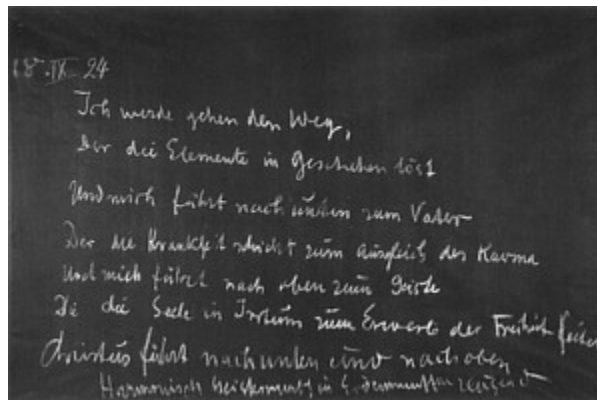 18.IX 24
Ich werde gehen den Weg,
Der die Elemente in Geschehen löst
Und mich führt nach unten zum Vater
Der die Krankheit schickt zum Ausgleich des Karma
Und mich führt nach oben zum Geiste
Die Seele in Irrtum zum Erwerb der Freiheit leitet
Christus führt nach unten und nach oben
Harmonisch in